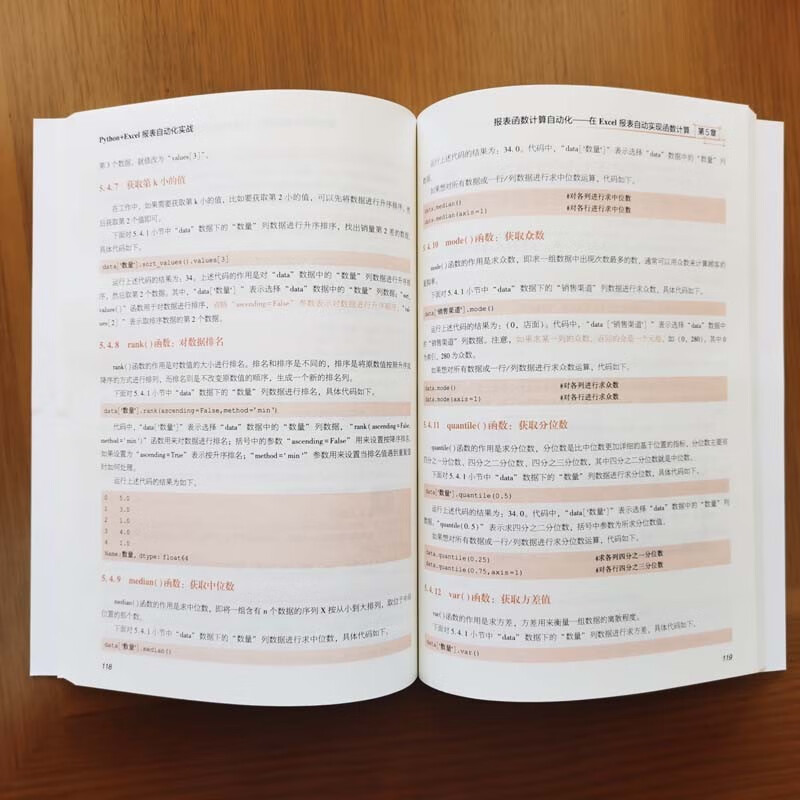 Python+Excel 报表自动化实战
第 3 个数据，就修改为“values[3]”。
5.4.7 获取第 k 小的值
在工作中，如果需要获取第 k 小的值，比如要获取第 2 小的值，可以先将数据进行升序排序，然
后获取第 2 个值即可。
下面对 5.4.1 小节中“data”数据下的“数量”列数据进行升序排序，找出销量第 2 差的数据，
具体代码如下。
data['数量'].sort_values().values[3]
运行上述代码的结果为：34。上述代码的作用是对“data”数据中的“数量”列数据进行升序排
序，然后取第 2 个数据。其中，“data['数量']”表示选择“data”数据中的“数量”列数据；“sort_
values()”函数用于对数据进行排序，
“ascending=False”参数表示对数据进行升序排序，“val-
ues[2]”表示取排序数据的第 2 个数据。
5.4.8 rank()函数：对数据排名
rank()函数的作用是对数值的大小进行排名。排名和排序是不同的，排序是将原数值按照升序或
降序的方式进行排列，而排名则是不改变原数值的顺序，生成一个新的排名列。
下面对 5.4.1 小节中“data”数据下的“数量”列数据进行排名，具体代码如下。
data['数量'].rank(ascending=False,method='min')
代码中，“data['数量']”表示选择“data”数据中的“数量”列数据，“rank(ascending=False,
method='min')”函数用来对数据进行排名；括号中的参数“ascending=False”用来设置按降序排名，
如果设置为“ascending=True”表示按升序排名；“method='min'”参数用来设置当排名值遇到重复值
时如何处理。
运行上述代码的结果如下。
0 5.0
1 3.0
2 1.0
3 4.0
4 1.0
Name:数量, dtype: float64
5.4.9 median()函数：获取中位数
median()函数的作用是求中位数，即将一组含有 n 个数据的序列 X 按从小到大排列，取位于中间
位置的那个数。
下面对 5.4.1 小节中“data”数据下的“数量”列数据进行求中位数，具体代码如下。
data['数量'].median()
118
报表函数计算自动化——在 Excel 报表自动实现函数计算 第5章
运行上述代码的结果为：34.0。代码中，“data['数量']”表示选择“data”数据中的“数量”列
数据。
如果想对所有数据或一行/列数据进行求中位数运算，代码如下。
data.median() #对各列进行求中位数
data.median(axis=1) #对各行进行求中位数
5.4.10 mode()函数：获取众数
mode()函数的作用是求众数，即求一组数据中出现次数最多的数，通常可以用众数来计算顾客的
复购率。
下面对 5.4.1 小节中“data”数据下的“销售渠道”列数据进行求众数，具体代码如下。
data['销售渠道'].mode()
运行上述代码的结果为：(0, 店面)。代码中，“data['销售渠道']”表示选择“data”数据中
的“销售渠道”列数据。注意，如果求某一列的众数，返回的会是一个元组，如 (0, 280)，其中 0
为索引，280 为众数。
如果想对所有数据或一行/列数据进行求众数运算，代码如下。
data.mode() #对各列进行求众数
data.mode(axis=1) #对各行进行求众数
5.4.11 quantile()函数：获取分位数
quantile()函数的作用是求分位数，分位数是比中位数更加详细的基于位置的指标，分位数主要有
四分之一分位数、四分之二分位数、四分之三分位数，其中四分之二分位数就是中位数。
下面对 5.4.1 小节中“data”数据下的“数量”列数据进行求分位数，具体代码如下。
data['数量'].quantile(0.5)
运行上述代码的结果为：34.0。代码中，“data['数量']”表示选择“data”数据中的“数量”列
数据，“quantile(0.5)”表示求四分之二分位数，括号中参数为所求分位数值。
如果想对所有数据或一行/列数据进行求分位数运算，代码如下。
data.quantile(0.25) #求各列四分之一分位数
data.quantile(0.75,axis=1) #对各行四分之三分位数
5.4.12 var()函数：获取方差值
var()函数的作用是求方差，方差用来衡量一组数据的离散程度。
下面对 5.4.1 小节中“data”数据下的“数量”列数据进行求方差，具体代码如下。
data['数量'].var()
119